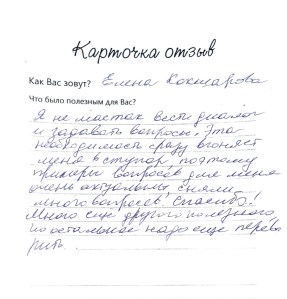 Карточка отзыв
Как Вас зовут? Елена Кокшарова
Что было полезным для Вас?
Я не мастак вести диалог
и задавать вопросы. Эта
необходимость сразу вгоняет
меня в ступор поэтому
примеры вопросов для меня
очень актуальны. Сняли
много вопросов! Спасибо!
Много еще другого полезного
но остальное надо еще перева
рить.